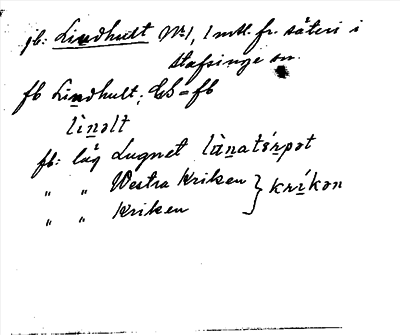 jb: Lindhult No 1, 1 mtl. fr. säteri i
Stafsinge sn.
fb Lindhult; CS = fb
lìnəlt
fb: låg Lugnet
" " Westra Kriken } krìkən
" " Kriken